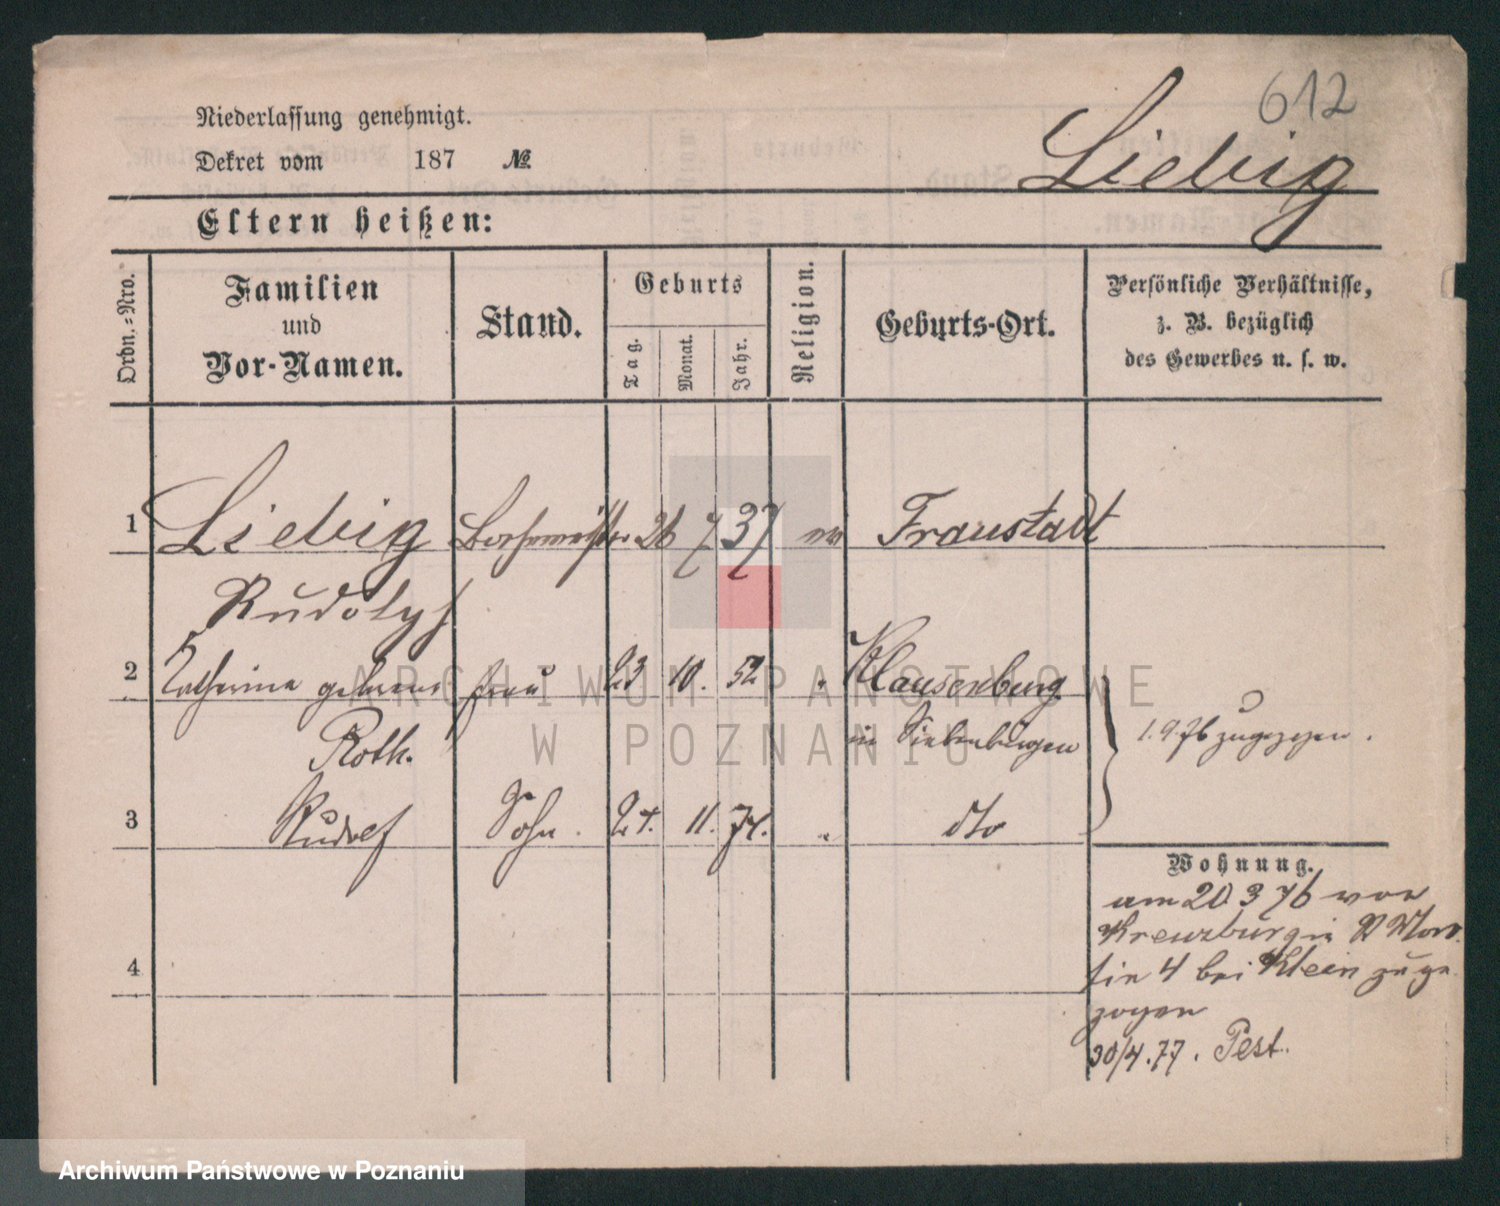 612
Niederlassung genehmigt.
Dekret vom 187 №
Liebig
Eltern heißen:
Ordn.=Nro.
Familien
und
Vor-Namen.
Stand.
Geburts
Tag.
Monat.
Jahr.
Religion.
Geburts-Ort.
Persönliche Verhältnisse,
z. B. bezüglich
des Gewerbes u. s. w.
1 Liebig 26 7 37 ev Fraustadt
Rudolph
2 Katharina geborene Frau 23 10. 52 „ Klausenburg
Roth. in Siebenbürgen
1.9.76 zugezogen.
3 Rudolf Sohn. 24. 11. 74. „ dto
Wohnung.
am 20 3 76 von
Kreuzburg in St Mar
tin 4 bei Klein zuge
zogen
30/4.77. Pest.
4
ARCHIWUM PAŃSTWOWE
W POZNANIU
Archiwum Państwowe w Poznaniu